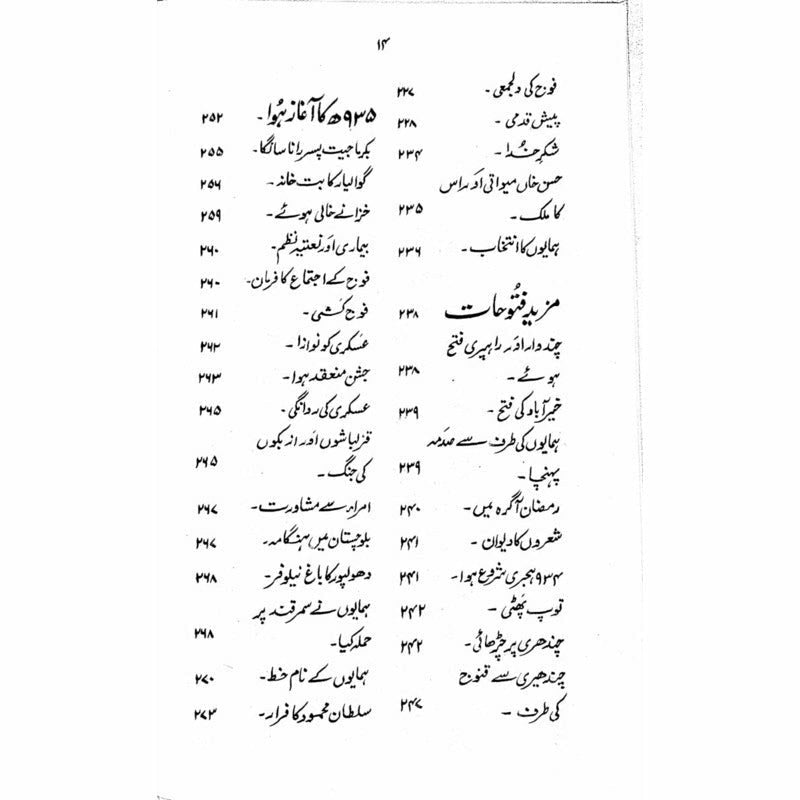 ۱۴
فوج کی دلجمعی - ۲۲۷
پیش قدمی - ۲۲۸
شکرِ خُدا - ۲۳۴
حسن خاں میواتی اور اس
کا ملک - ۲۳۵
ہمایوں کا انتخاب - ۲۳۶
مزید فتُوحات ۲۳۸
چندوار اور راپری فتح
ہوئے - ۲۳۸
خیرآباد کی فتح - ۲۳۹
ہمایوں کی طرف سے صدمہ
پہنچا - ۲۳۹
رمضان آگرہ میں - ۲۴۰
شعروں کا دیوان - ۲۴۱
۹۳۴ ہجری شروع ہوا - ۲۴۱
توپ پھٹی - ۲۴۲
چندھری پر چڑھائی - ۲۴۲
چندھیری سے قنوج
کی طرف - ۲۴۷
۹۳۵ھ کا آغاز ہُوا - ۲۵۲
بکرماجیت پسر رانا سانگا - ۲۵۵
گوالیار کا بت خانہ - ۲۵۶
خزانے خالی ہوئے - ۲۵۹
بیماری اور نعتیہ نظم - ۲۶۰
فوج کے اجتماع کا فرمان - ۲۶۰
فوج کشی - ۲۶۱
عسکری کو نوازا - ۲۶۲
جشن منعقد ہوا - ۲۶۳
عسکری کی روانگی - ۲۶۵
قزلباشوں اور ازبکوں
کی جنگ - ۲۶۵
امراء سے مشاورت - ۲۶۷
بلوچستان میں ہنگامہ - ۲۶۷
دھولپور کا باغ نیلوفر - ۲۶۸
ہمایوں نے سمرقند پر
حملہ کیا - ۲۶۸
ہمایوں کے نام خط - ۲۷۰
سلطان محمود کا فرار - ۲۷۳